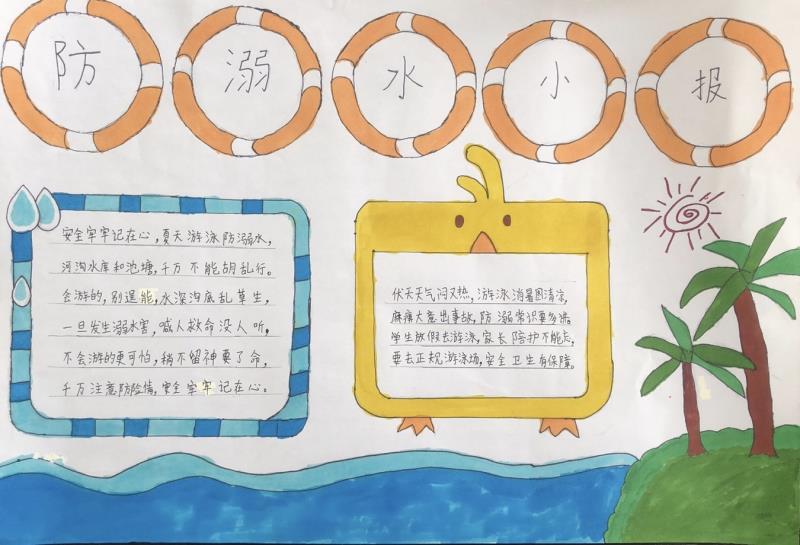 防溺水小报
安全牢牢记在心，夏天游泳防溺水，
河沟水库和池塘，千万不能胡乱行。
会游的，别逞能，水深沟底乱草生，
一旦发生溺水害，喊人救命没人听，
不会游的更可怕，稍不留神要了命，
千万注意防险情，安全牢牢记在心。
伏天天气闷又热，游泳消暑图清凉，
麻痹大意出事故，防溺常识要多讲。
学生放假去游泳，家长陪护不能忘，
要去正规游泳场，安全卫生有保障。